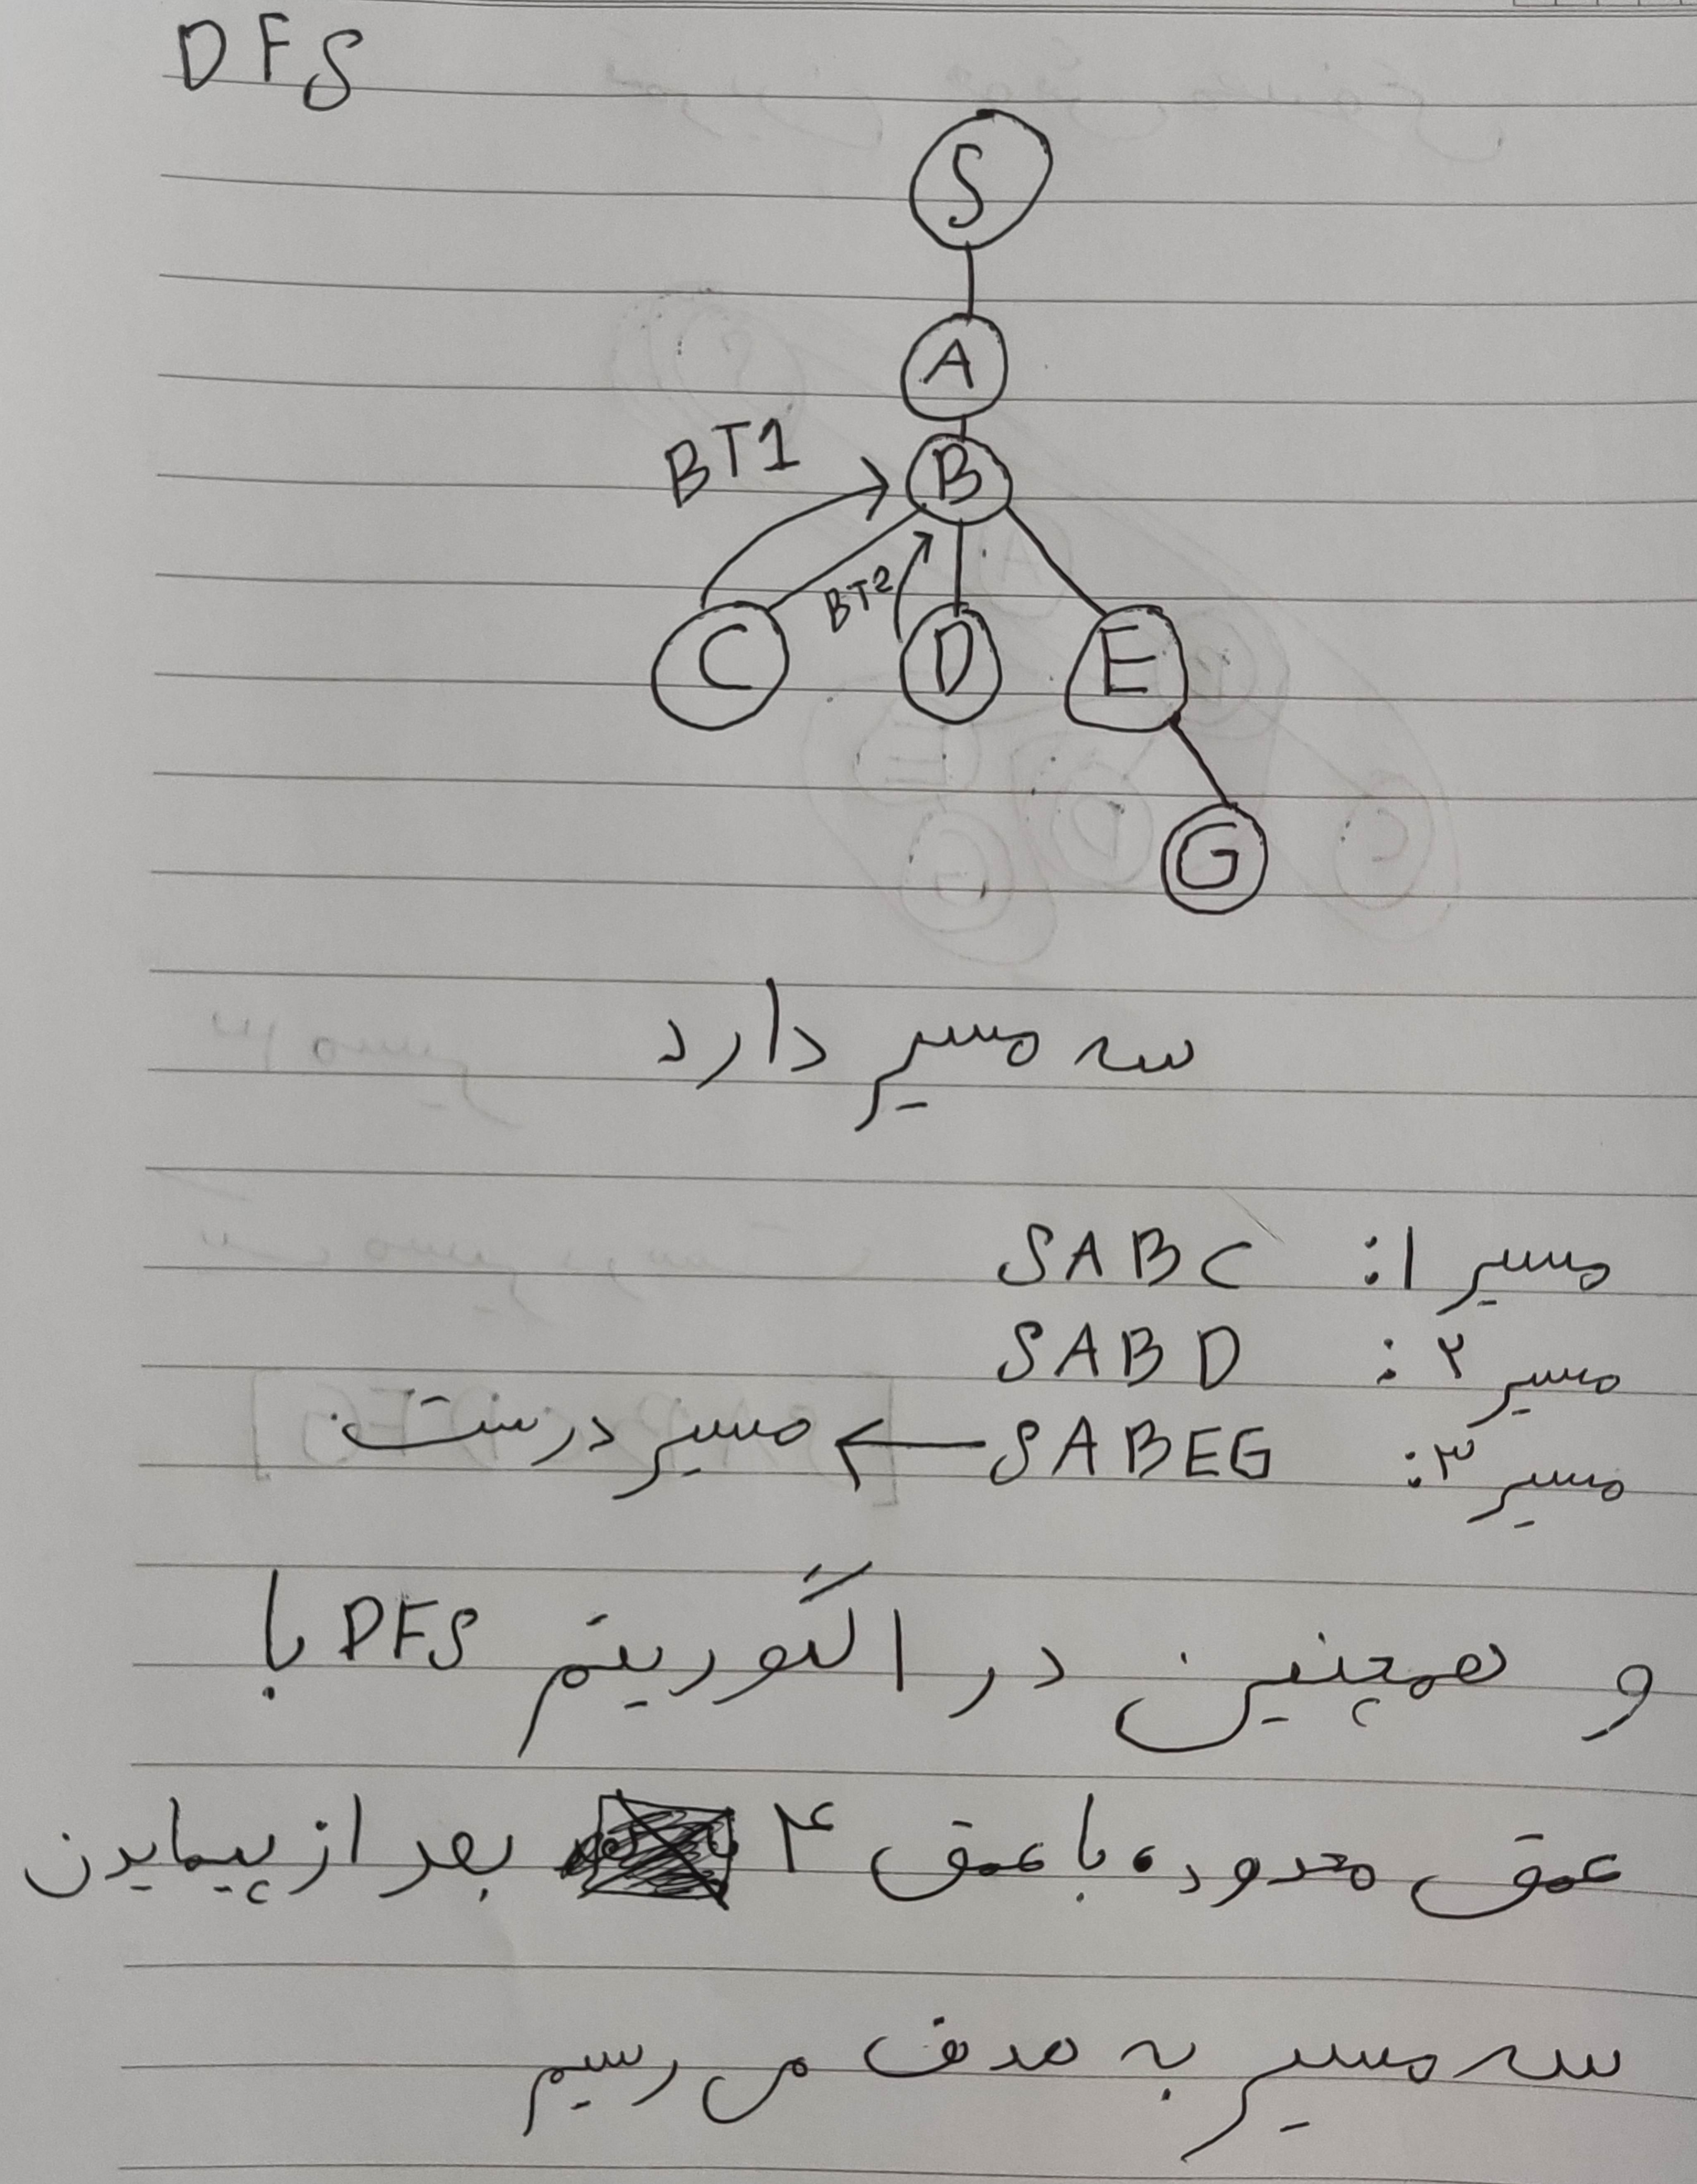 DFS
S
A
BT1
B
BT2
C D E
G
سه مسیر دارد
مسیر ۱: SABC
مسیر ۲: SABD
مسیر ۳: SABEG ← مسیر درست
و همچنین در الگوریتم DFS با
عمق محدود، با عمق ۴ بعد از پیمایدن
سه مسیر به هدف می رسیم